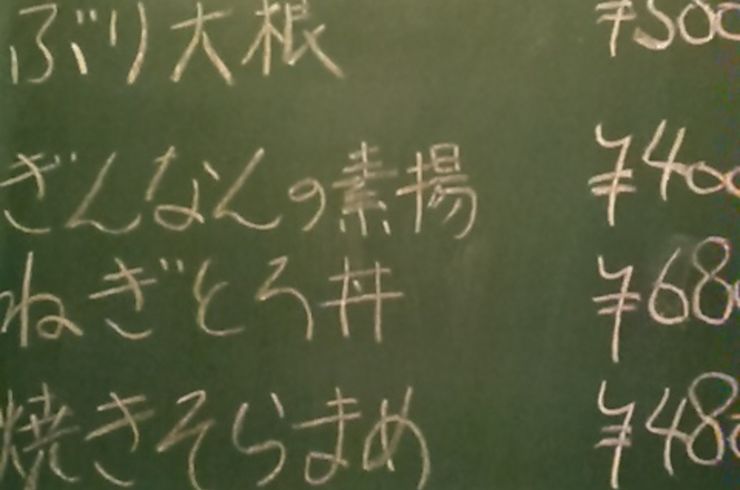 ぶり大根 ¥500
ぎんなんの素揚 ¥400
ねぎとろ丼 ¥680
焼きそらまめ ¥480